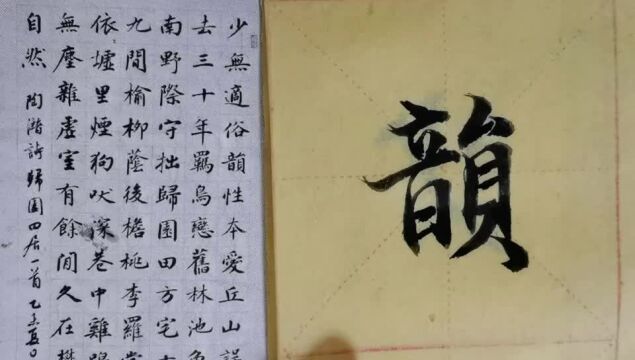 少無適俗韻性本愛丘山誤
去三十年羈鳥戀舊林池魚
南野際守拙歸園田方宅十
九間榆柳蔭後檐桃李羅堂
依墟里煙狗吠深巷中雞鳴
無塵雜虛室有餘閒久在樊
自然 陶潛詩歸園田居一首
韻